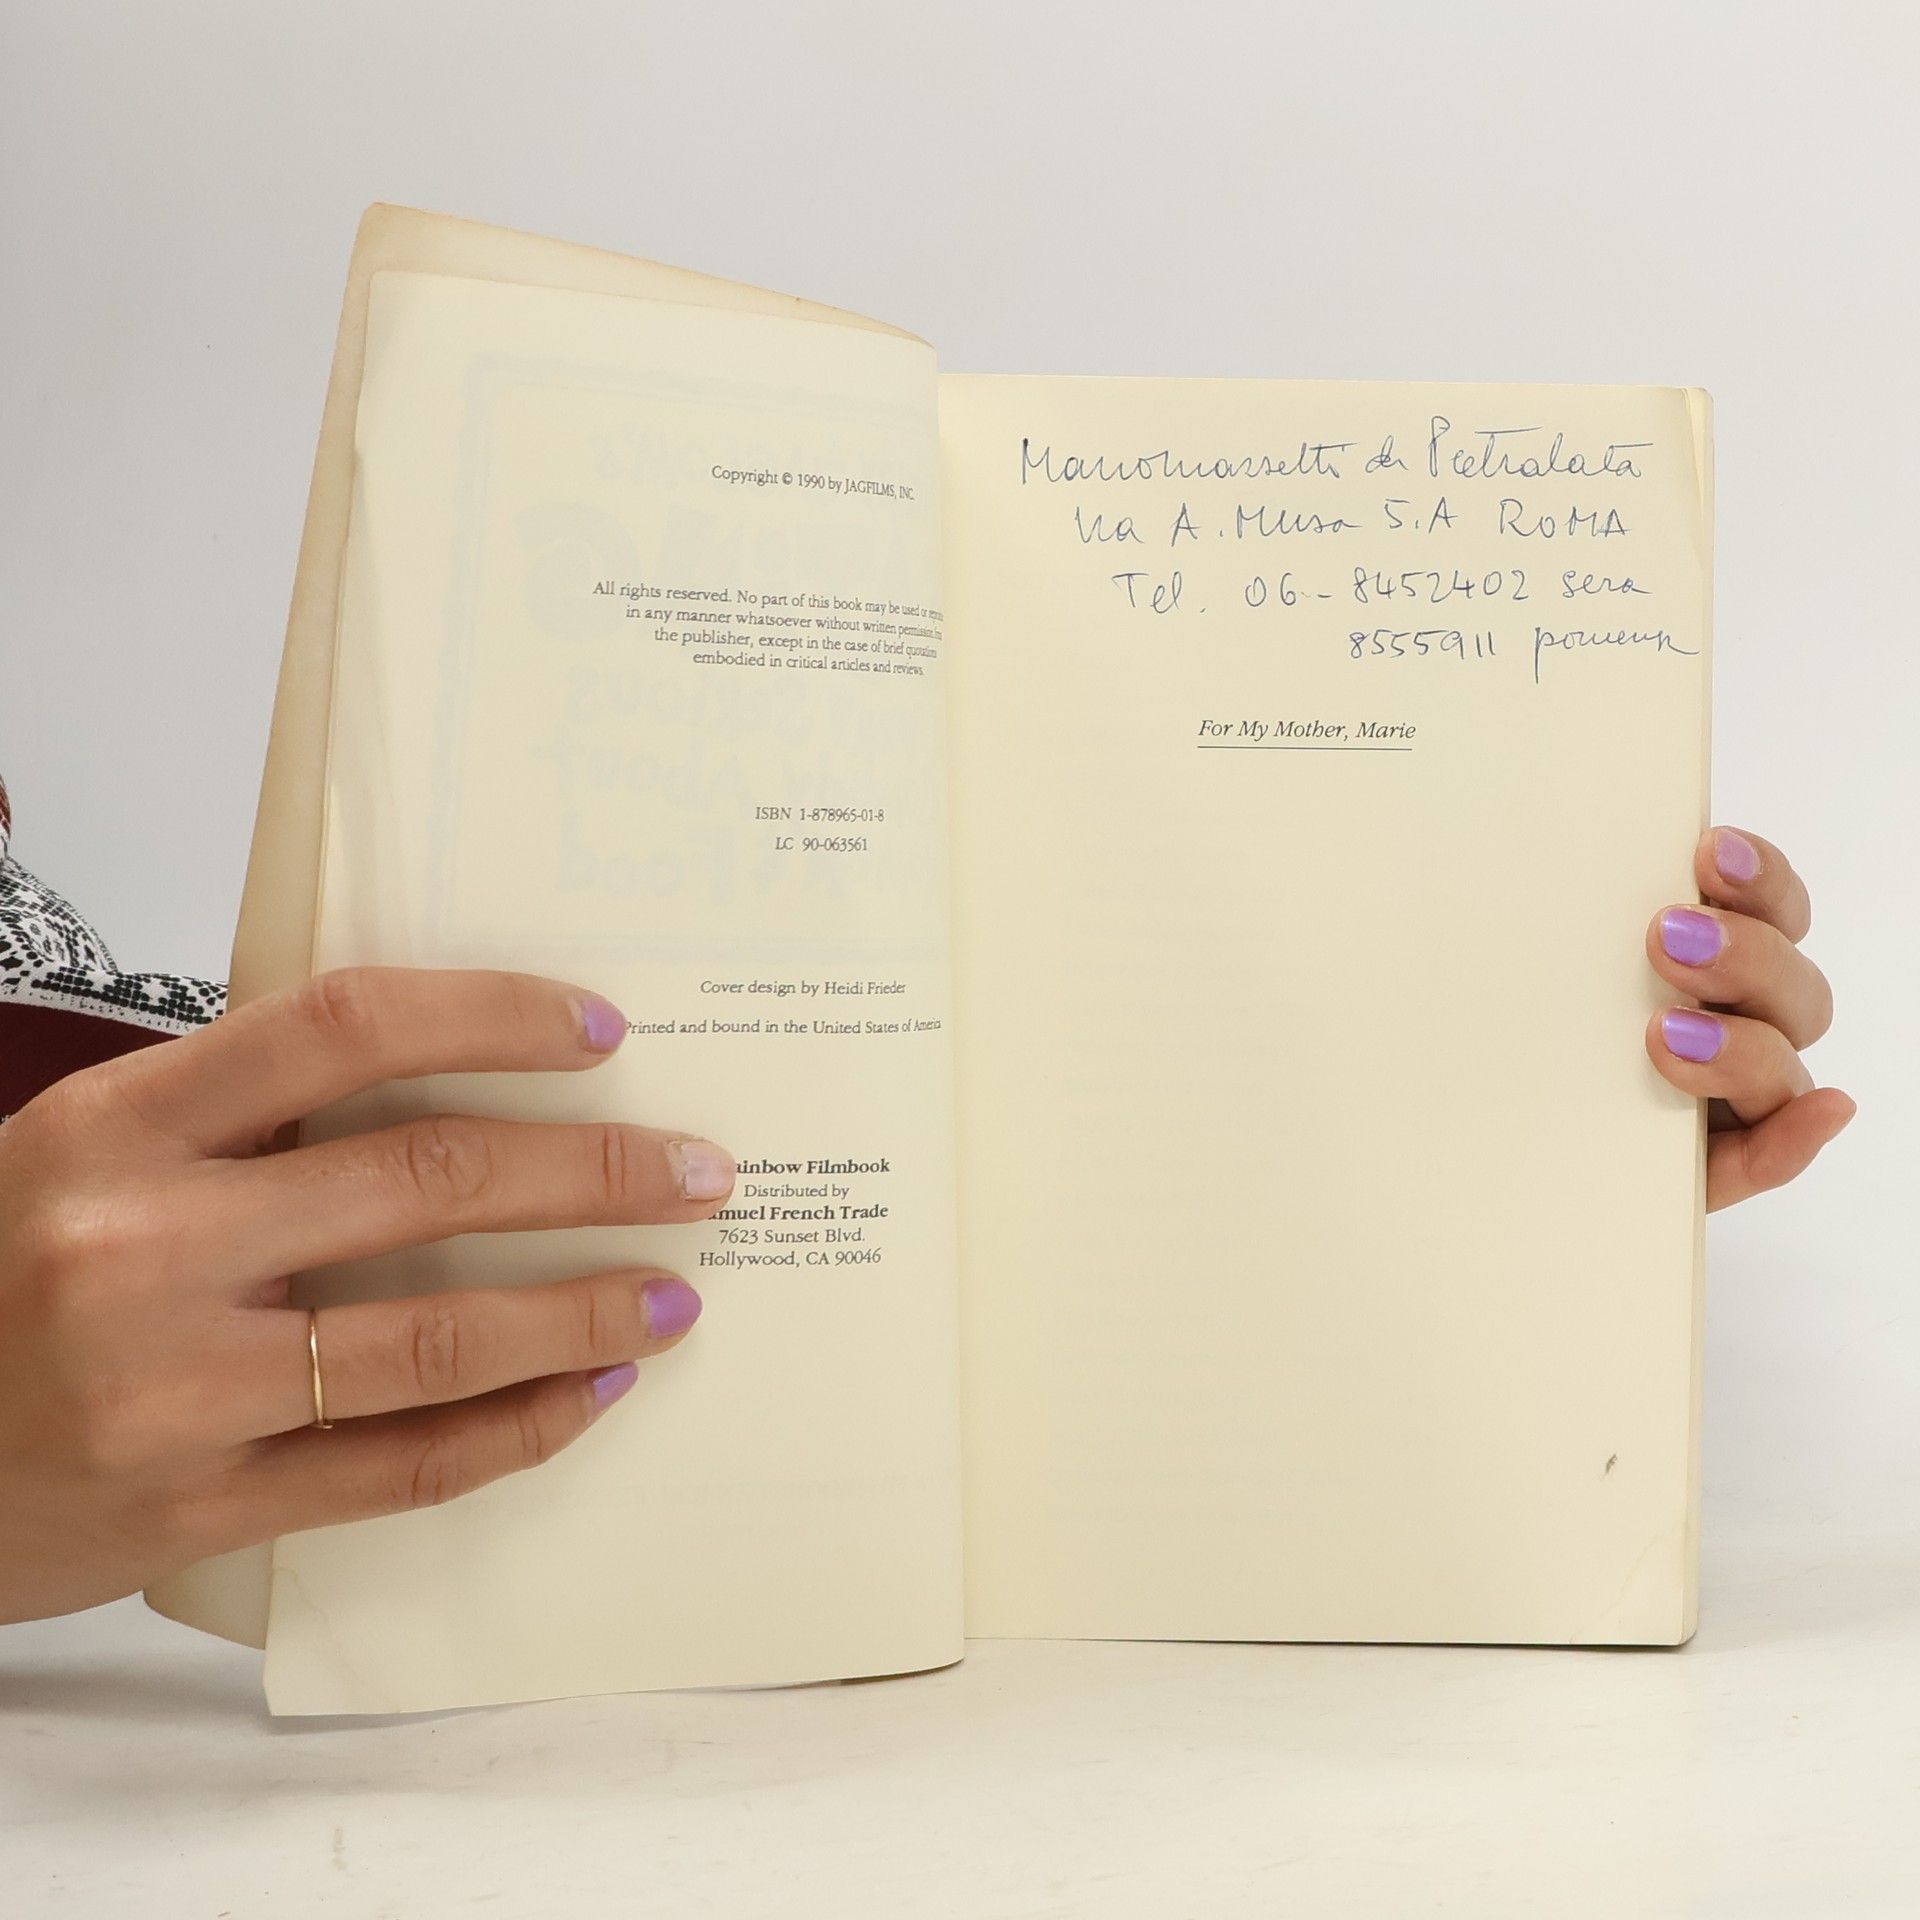 Copyright © 1990 by JAGFILMS, INC.
All rights reserved. No part of this book may be used or
in any manner whatsoever without written permission
the publisher, except in the case of brief quotations
embodied in critical articles and reviews.
ISBN 1-878965-01-8
LC 90-063561
Cover design by Heidi Frieder
Printed and bound in the United States of America
ainbow Filmbook
Distributed by
muel French Trade
7623 Sunset Blvd.
Hollywood, CA 90046
di Pietralata
Via A. Musa 5.A ROMA
Tel. 06-8452402 sera
8555911
For My Mother, Marie